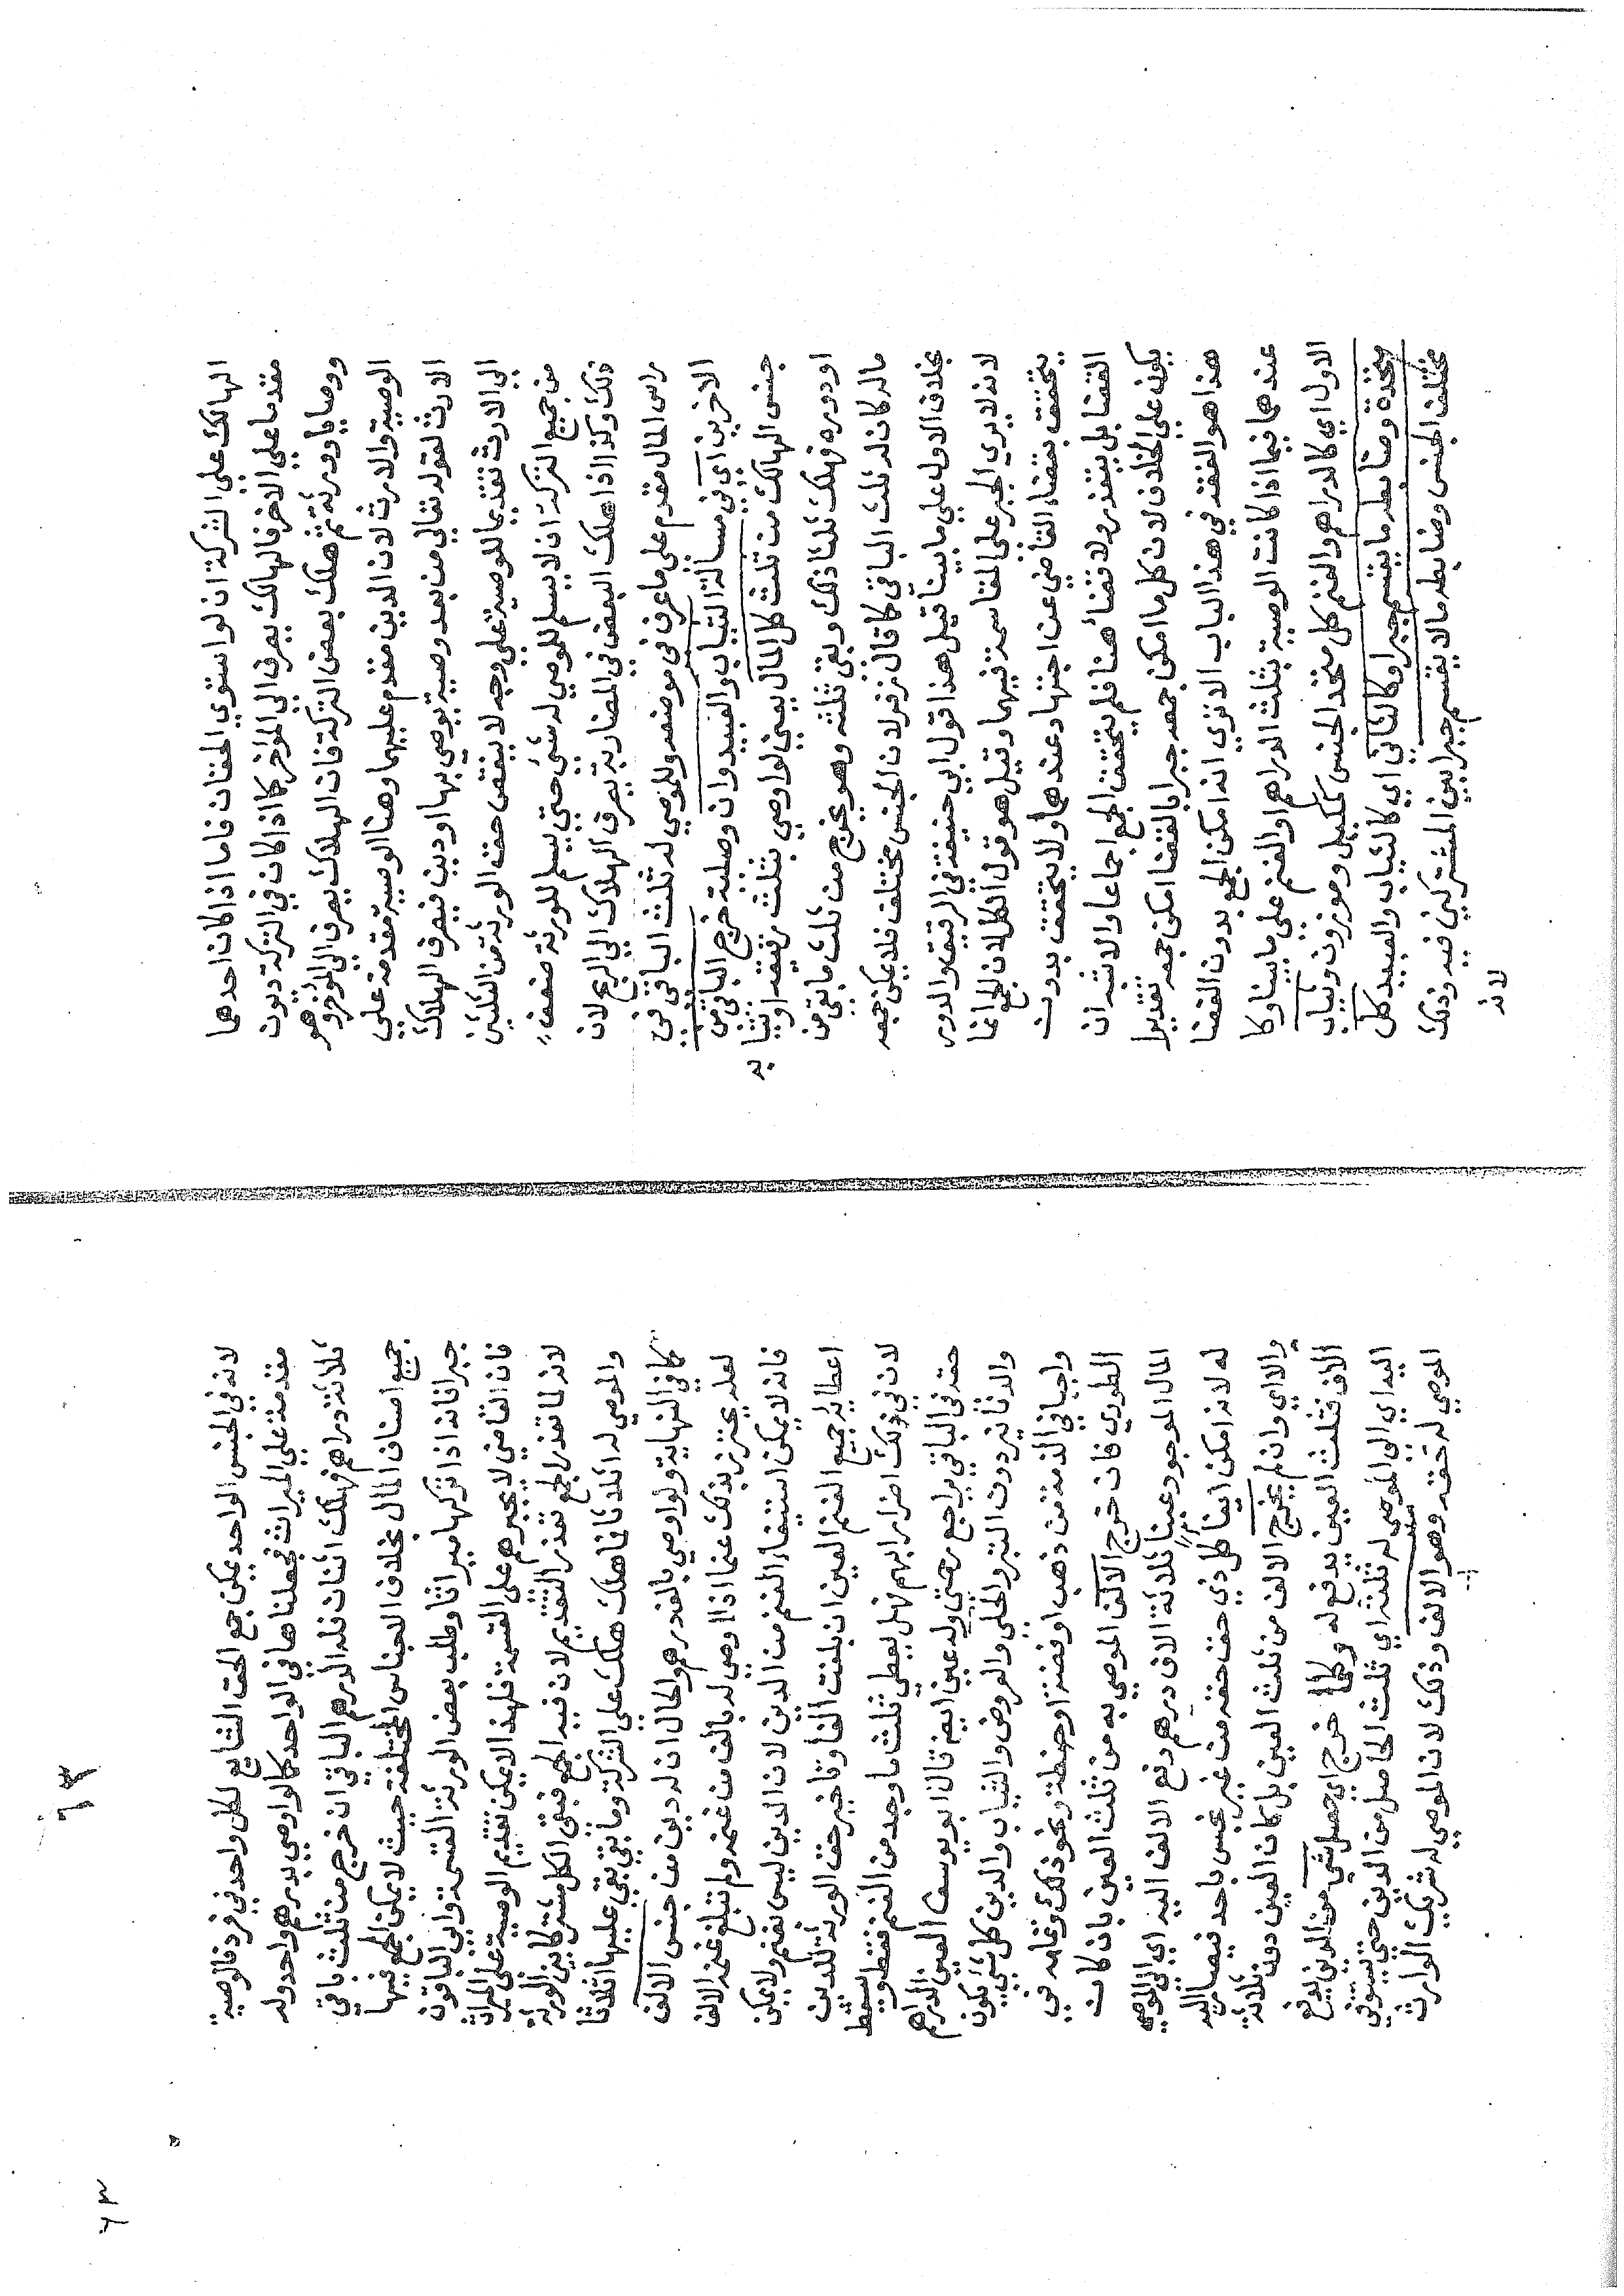 الهالك علي الشركة ان لو استوي الحقان فاما اذا كان احدهما
مقدما علي الاخر فالهالك يصرف الي المؤخر كما اذا كان في التركة ديون
ووصايا وورثة ثم هلك بعض التركة فان الهلاك يصرف الي المؤخر وهو
الوصية والارث لان الدين مقدم عليهما وهنا الوصية مقدمة علي
الارث لقوله تعالي من بعد وصية يوصي بها او دين فيصرف الهلاك
الي الارث تقديما للوصية علي وجه لا ينقص حق الورثة من الثلثين
من جميع التركة ان لا يسلم للموصي له شي حتي يسلم للورثة ضعف
ذلك وكذا اذا هلك البعض في المضاربة يصرف الهلاك الي الربح لان
راس المال مقدم علي ما عرف في موضعه وللموصي له ثلث الباقي في
الاخرين اي في مسألة الثياب والعبيد وان وصلية خرج الباقي من
جنس الهالك من ثلث كل المال يعني لو اوصي بثلث رقيقه او ثيابه
او دوره فهلك ثلثا ذلك وبقي ثلثه وهو يخرج من ثلث ما بقي من
ماله كان له ثلث الباقي كما قال زفر لان الجنس مختلف فلا يمكن جمعه
بخلاف الاول علي ما بينا قيل هذا قول ابي حنيفة في الرقيق والدور
لانه لا يري الجبر علي المقاسمة فيهما وقيل هو قول الكل لان الجمع انما
يتحقق بقضاء القاضي عن اجتهاد عندهما ولا يتحقق بدون
القضا بل يتعذر ولا قضأ هنا فلم يتحقق الجمع اجماعا والاشبه ان
يكون علي الخلاف لان كل ما امكن جمعه جبرا بالقضا امكن جمعه تقديرا
هذا هو الفقه في هذا الباب الا تري انه امكن الجمع بدون القضا
عندهما فيما اذا كانت الوصية بثلث الدراهم او الغنم علي ما بينا وكا
الاول اي كالدراهم والغنم كل متحد الجنس كمكيل وموزون وثياب
متحدة وضابطه ما يقسم جبرا وكالثاني اي كالثياب والعبيد كل
مختلف الجنس وضابطه ما لا يقسم جبرا بين المشتركين فيه وذلك
لانه
٦٣
لانه في الجنس الواحد يمكن جمع الحق الشايع لكل واحد في فرد فالوصية
مقدمة علي الميراث فجعلناها في الواحد كما لو اوصي بدرهم واحد وله
ثلاثة دراهم فهلك اثنان فله الدرهم الباقي ان خرج من ثلث باقي
جميع اصناف المال بخلاف الاجناس المختلفة حيث لا يمكن الجمع فيها
جبرا فانه اذا تركها ميراثا وطلب بعض الورثة القسمة وابي الباقون
فان القاضي لا يجبرهم علي القسمة فلهذا لا يمكن تقديم الوصية علي الميراث
لانه لما تعذر الجمع تعذر التقديم لان فيه الجمع فبقي الكل مشتركا بين الورثة
والموصي له اثلاثا فما هلك هلك علي الشركة وما بقي بقي عليها اثلاثا
كما في النهاية ولو اوصي بالف درهم والحال ان له دين من جنس الالف
لعله يحترز بذلك عما اذا اوصي له بالف من غنمه ولم تبلغ غنمه الالف
فانه لا يمكن استيفاء الغنم من الدين لان الدين ليس بغنم ولا يمكن
اعطاله جميع الغنم العين ان بلغت الفا وتاخير حق الورثة للدين
لان في ذلك اضرار بهم فهل يعطي ثلث ما وجد من الغنم فقط ويسقط
حقه في الباقي يراجع رحمتي وله عين ايضا قال ابو يوسف العين الدراهم
والدنانير دون التبر والحلي والعروض والثياب والدين كل شي يكون
واجبا في الذمة من ذهب او فضة او حنطة ونحو ذلك وتمامه في
الطوري فان خرج الالف الموصي به من ثلث العين بان كان
المال الموجود عينا ثلاثة الاف درهم دفع الالف اليه اي الي الموصي
له لانه امكن ايفا كل ذي حق حقه من غير بخس باحد فيصار اليه
والا اي وان لم يخرج الالف من ثلث العين بل كان العين دون ثلاثة
الاف فثلث العين يدفع له وكلما خرج اي حصل شي من الدين دفع
اليه اي الي الموصي له ثلثه اي ثلث الحاصل من الدين حتي يستوفي
الموصي له حقه وهو الالف وذلك لان الموصي له شريك الوارث
٦٣